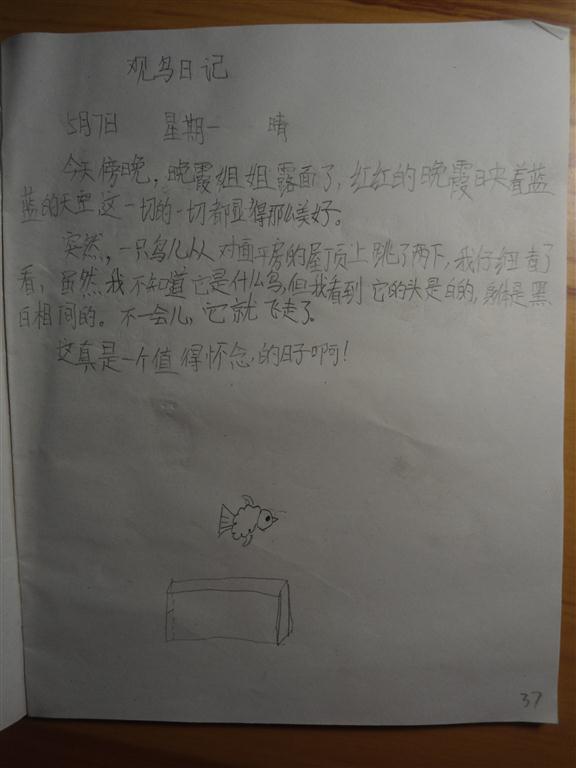 观鸟日记
5月7日 星期一 晴
今天傍晚，晚霞姐姐露面了，红红的晚霞映着蓝
蓝的天空这一切的一切都显得那么美好。
突然，一只鸟儿从对面平房的屋顶上跳了两下，我仔细看了
看，虽然我不知道它是什么鸟，但我看到它的头是白的，身体是黑
白相间的。不一会儿，它就飞走了。
这真是一个值得怀念的日子啊！
37